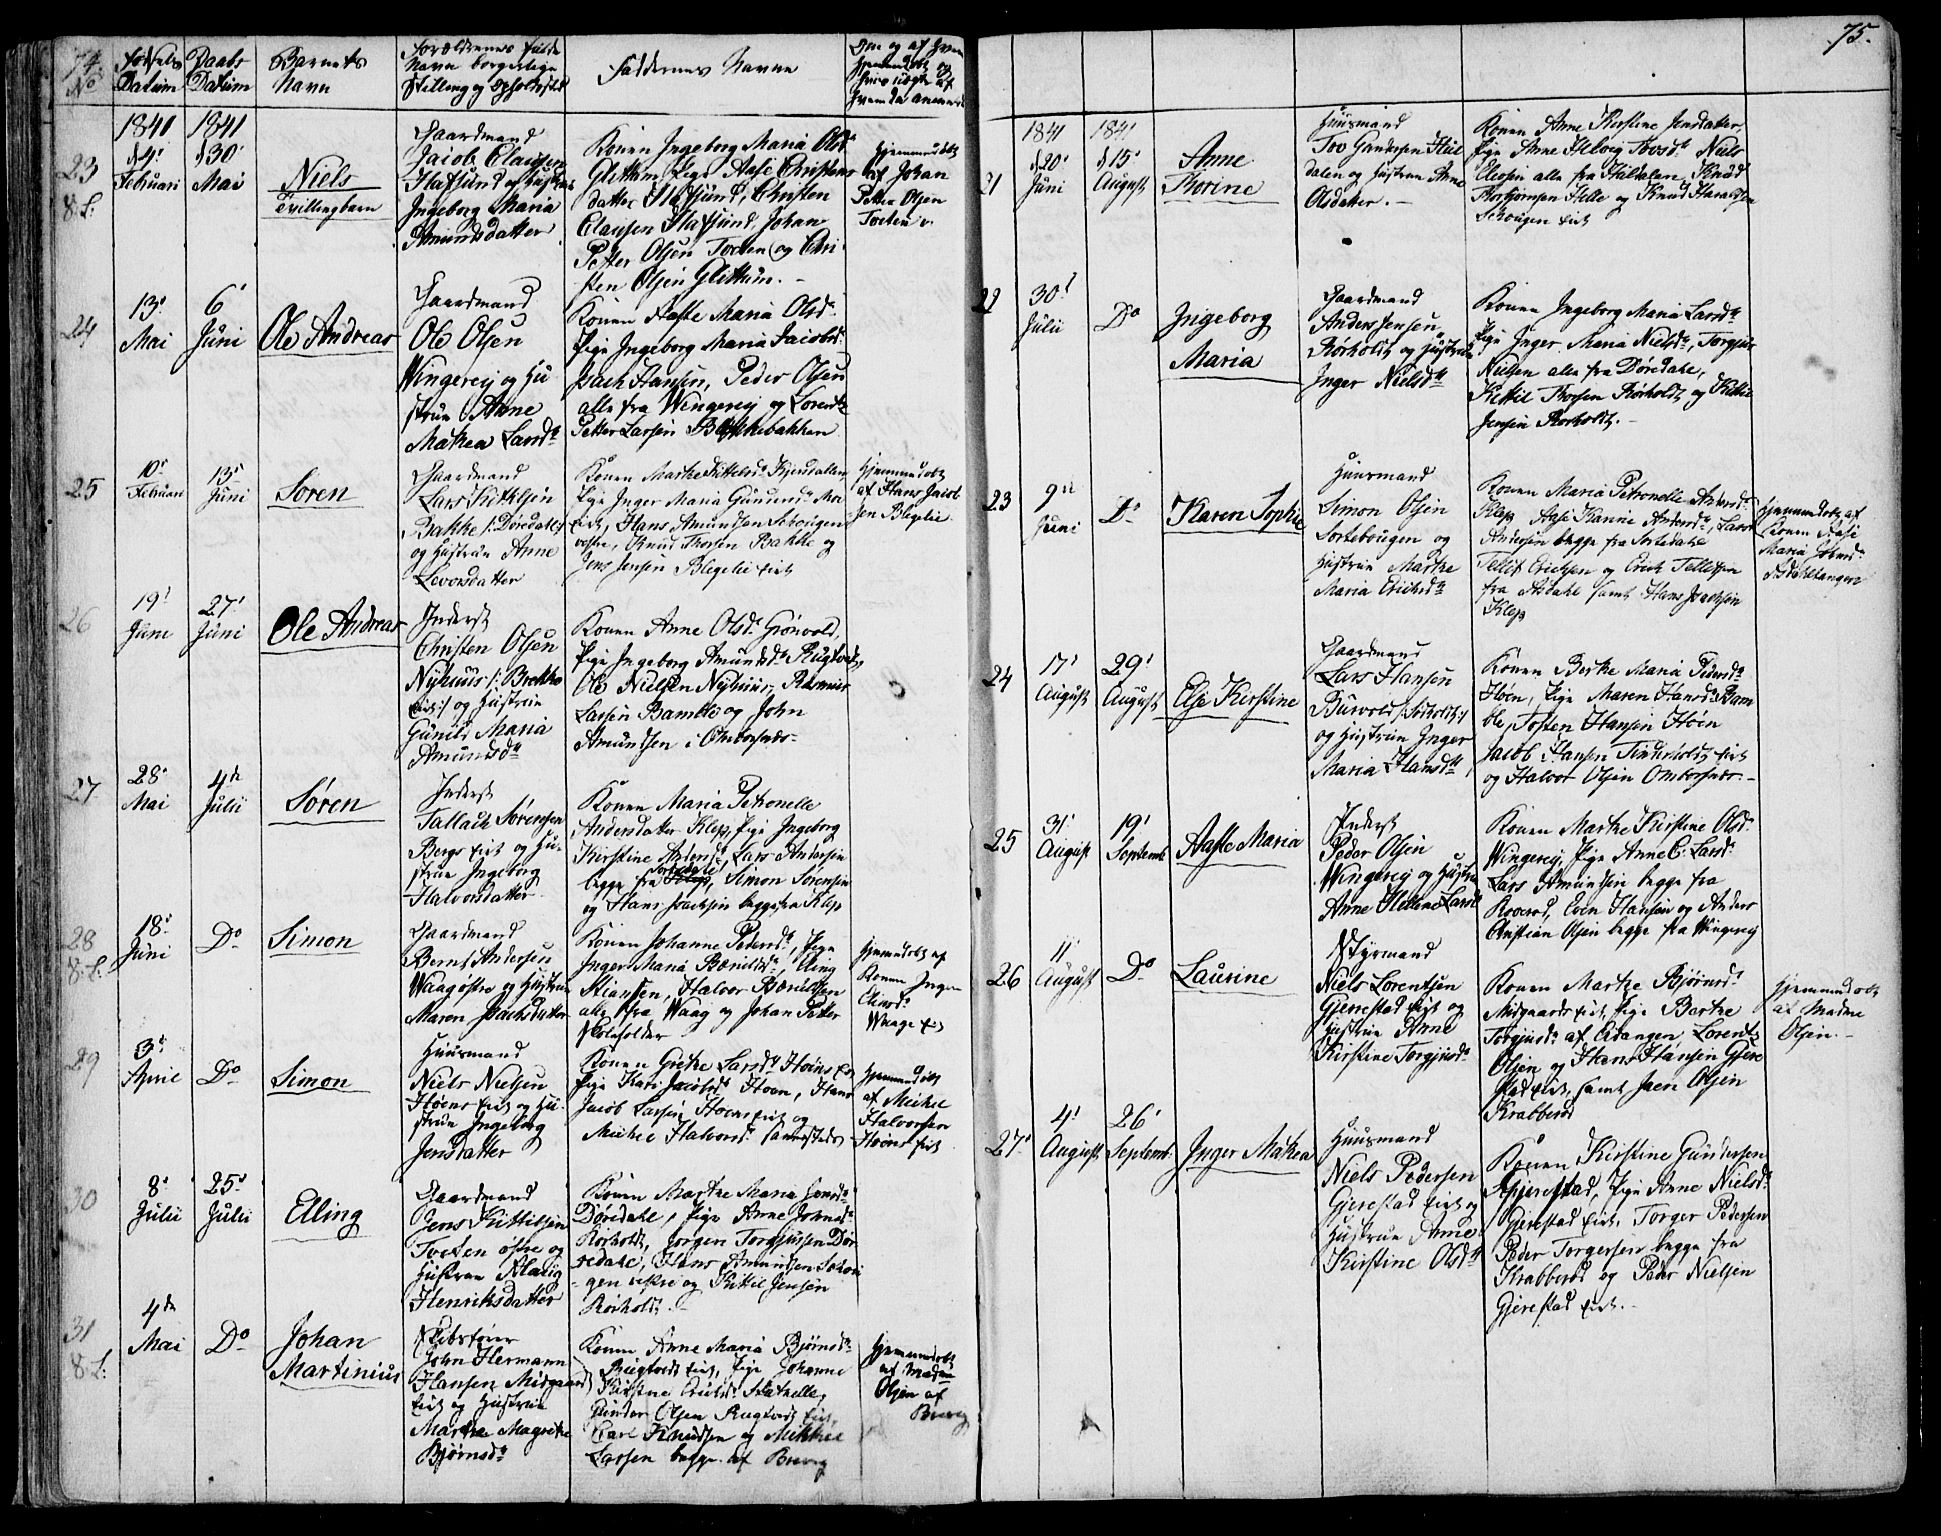 74.
No
Fødsels
Datum
Daabs
Datum
Barnets
Navn
Forældrenes fulde
Navn borgerlige
Stilling og Opholdssted
Faddernes Navne
23
8.L.
1841
d 4'
Februari
1841
d 30'
Mai
Niels
Tvillingbarn
Gaardmand
Jacob Clausen
Stafsund og Hustrue
Ingeborg Maria
Amundsdatter
Konen Ingeborg Maria Olsd.
Glittum, Pige Aase Christens
datter Stafsund, Christen
Clausen Stafsund, Johan
Petter Olsen Tveten og Chri-
sten Olsen Glittum. –
hjemmedøbt
af Johan
Petter Olsen
Tveten
24
13'
Mai
6'
Juni
Ole Andreas
Gaardmand
Ole Olsen
Wingereij og Hu
strue Anne
Mathea Larsd.
Konen Aaste Maria Olsd.
Pige Ingeborg Maria Jacobsd.
Isach Hansen, Peder Olsen
alle fra Wingereij og Lorentz
Petter Larsen Blekkebakken
25
10'
Februari
13'
Juni
Soren
Gaardmand
Lars Kittilsen
Bakke /: Dørdahl :/
og Hustrue Anne
Levorsdatter
Konen Marthe Kittelsd. Kjendallen,
Pige Inger Maria Gunnunds.
Eiet, Hans Amundsen Schougen
vestre, Knud Thorsen Bakke og
Jens Jensen Blegelie Eiet
hjemmedøbt
af Hans Jacob
sen Blegelie
26
19'
Juni
27'
Juni
Ole Andreas
Inderst
Christen Olsen
Nyhuus /: Brekke
Eiet :/ og Hustrue
Gunild Maria
Amundsd.
Konen Anne Olsd. Grönvold,
Pige Ingeborg Amundsd. Rugtved,
Ole Nielsen Nyhuus, Rasmus
Larsen Bamble og John
Amundsen i Omborsnes –
27
28'
Mai
4de
Julii
Søren
Inderst
Tallack Sørensen
Bergs Eiet og Hu-
strue Ingeborg
Halvorsdatter
Konen Maria Petronelle
Andersdatter Klep, Pige Ingeborg
Kirstine Andersd. Lars Andersen
begge fra Klep, Simon Sørensen
og Hans Isachsen begge fra Klep
28
8.L.
18'
Juni
Do
Simon
Gaardmand
Bernt Andersen
Waag østre og Hustrue
Maren Isachsdatter
Konen Johanne Pedersd., Pige
Inger Maria Berntsd., Elling
Stiansen, Halvor Berntsen
alle fra Waag og Johan Petter
Skoleholder
hjemmedøbt af
Konen Inger
Waage Eiet
29
3'
April
Do
Simon
Huusmand
Niels Nielsen
Høens Eiet og Hu-
strue Ingeborg
Jensdatter
Konen Grethe Larsd. Høens Eiet
Pige Kari Jacobsd. Hoen, Hans
Jacob Larsen Hoens Eiet og
Mickel Halvorsd. sammesteds
hjemmedøbt
af Mickel
Halvorsen
Høens Eiet
30
8'
Julii
25'
Julii
Elling
Gaardmand
Jens Kittilsen
Tveten østre og
Hustrue Alavig
Henriksdatter
Konen Marthe Maria Jensd.
Dørdahl, Pige Anne Johnsd.
Rorholt, Jorgen Torgjussen Dør
redahl, Hans Amundsen Schou
gen vestre og Kittil Jensen
Rörholt. –
31
8.L.
4de
Mai
Do
Johan
Martinius
Skibsfører
John Hermann
Hansen Midgaards
Eiet og Hustrue
Marthe Magrethe
Bjørnsd.
Konen Anne Maria Bjørnsd.
Rugtvedt Eiet, Pige Johanne
Kirstine Erichsd. Stathelle,
Gunder Olsen Rugtvedt Eiet,
Carl Knudsen og Mikkel
Larsen begge af Brevig
hjemmedøbt
af Madame
Olsen af
Brevig
75.
21
1841
d 20'
Juni
1841
d 15'
August
Anne
Thorine
Huusmand
Tov Gundersen Hul
dalen og Hustrue Anne
Olsdatter. –
Konen Anne Kirstine Jensdatter,
Pige Anne Helvig Tovsd. Niels
Olessen alle fra Huldalen, Knud
Thorbjornsen Helle og Knud Haraldsen
Schougen Eiet
22
30'
Julii
Do
Ingeborg
Maria
Gaardmand
Anders Jensen
Rørholdt og Hustrue
Inger Nielsd.
Konen Ingeborg Maria Larsd.
Pige Inger Maria Nielsd., Torgju
Nielsen alle fra Dørdahl,
Kittil Thorsen Rørholdt og Kittil
Jensen Rorholdt. –
23
9de
Juni
Do
Karen Sophie
Huusmand
Simon Olsen
Sortebougen og
Hustrue Marthe
Maria Erichsd.
Konen Maria Petronelle Andersd.
Klep Aase Karine Andersd., Lars
Andersen begge fra Sortedahl
Tellif Erichsen og Erich Tellefsen
fra Asdahl samt Hans Isachsen
Klep
hjemmedøbt af
Konen Aase
Maria
Asdahltangen
24
17'
August
29'
August
Else Kirstine
Gaardmand
Lars Hansen
Burvold /: Fosholdt :/
og Hustrue Inger
Maria Hansd.
Konen Berthe Maria Pedersd.
Høen, Pige Maren Hansd. Bam
ble, Tosten Hansen Høen
Jacob Hansen Tinderholdt Eiet
og Halvor Olsen Omborsnes. –
25
31'
August
19'
Septemb.
Aaste Maria
Inderst
Peder Olsen
Wingereij og Hustrue
Anne Hellene Larsd.
Konen Marthe Kirstine Olsd.
Wingereij, Pige Anne C. Larsd.
Lars Amundsen begge fra
Roverød, Even Hansen og Anders
Christian Olsen begge fra Wingereij
26
11'
August
Do
Laurine
Styrmand
Niels Lorentsen
Gjerestad Eiet og
Hustrue Anne
Kirstine Torgjusd.
Konen Marthe Bjørnsd.
Midgaards Eiet, Pige Berthe
Torgjusd. af Eidanger, Lorentz
Olsen og Hans Hansen Gjere
stad Eiet, samt Jsen Olsen
Krabberød
hjemmedøbt
af Madme
Olsen. –
27
4'
August
26'
Septemb.
Inger Mathea
Huusmand
Niels Pedersen
Gjerestad Eiet og
Hustrue Anne
Kirstine Olsd.
Konen Kirstine Gundersen
Gjerestad, Pige Anne Nielsd.
Gjerestad Eiet, Torger Pedersen
Peder Torgersen begge fra
Krabberød og Peder Nielsen
Gjerestad Eiet. –